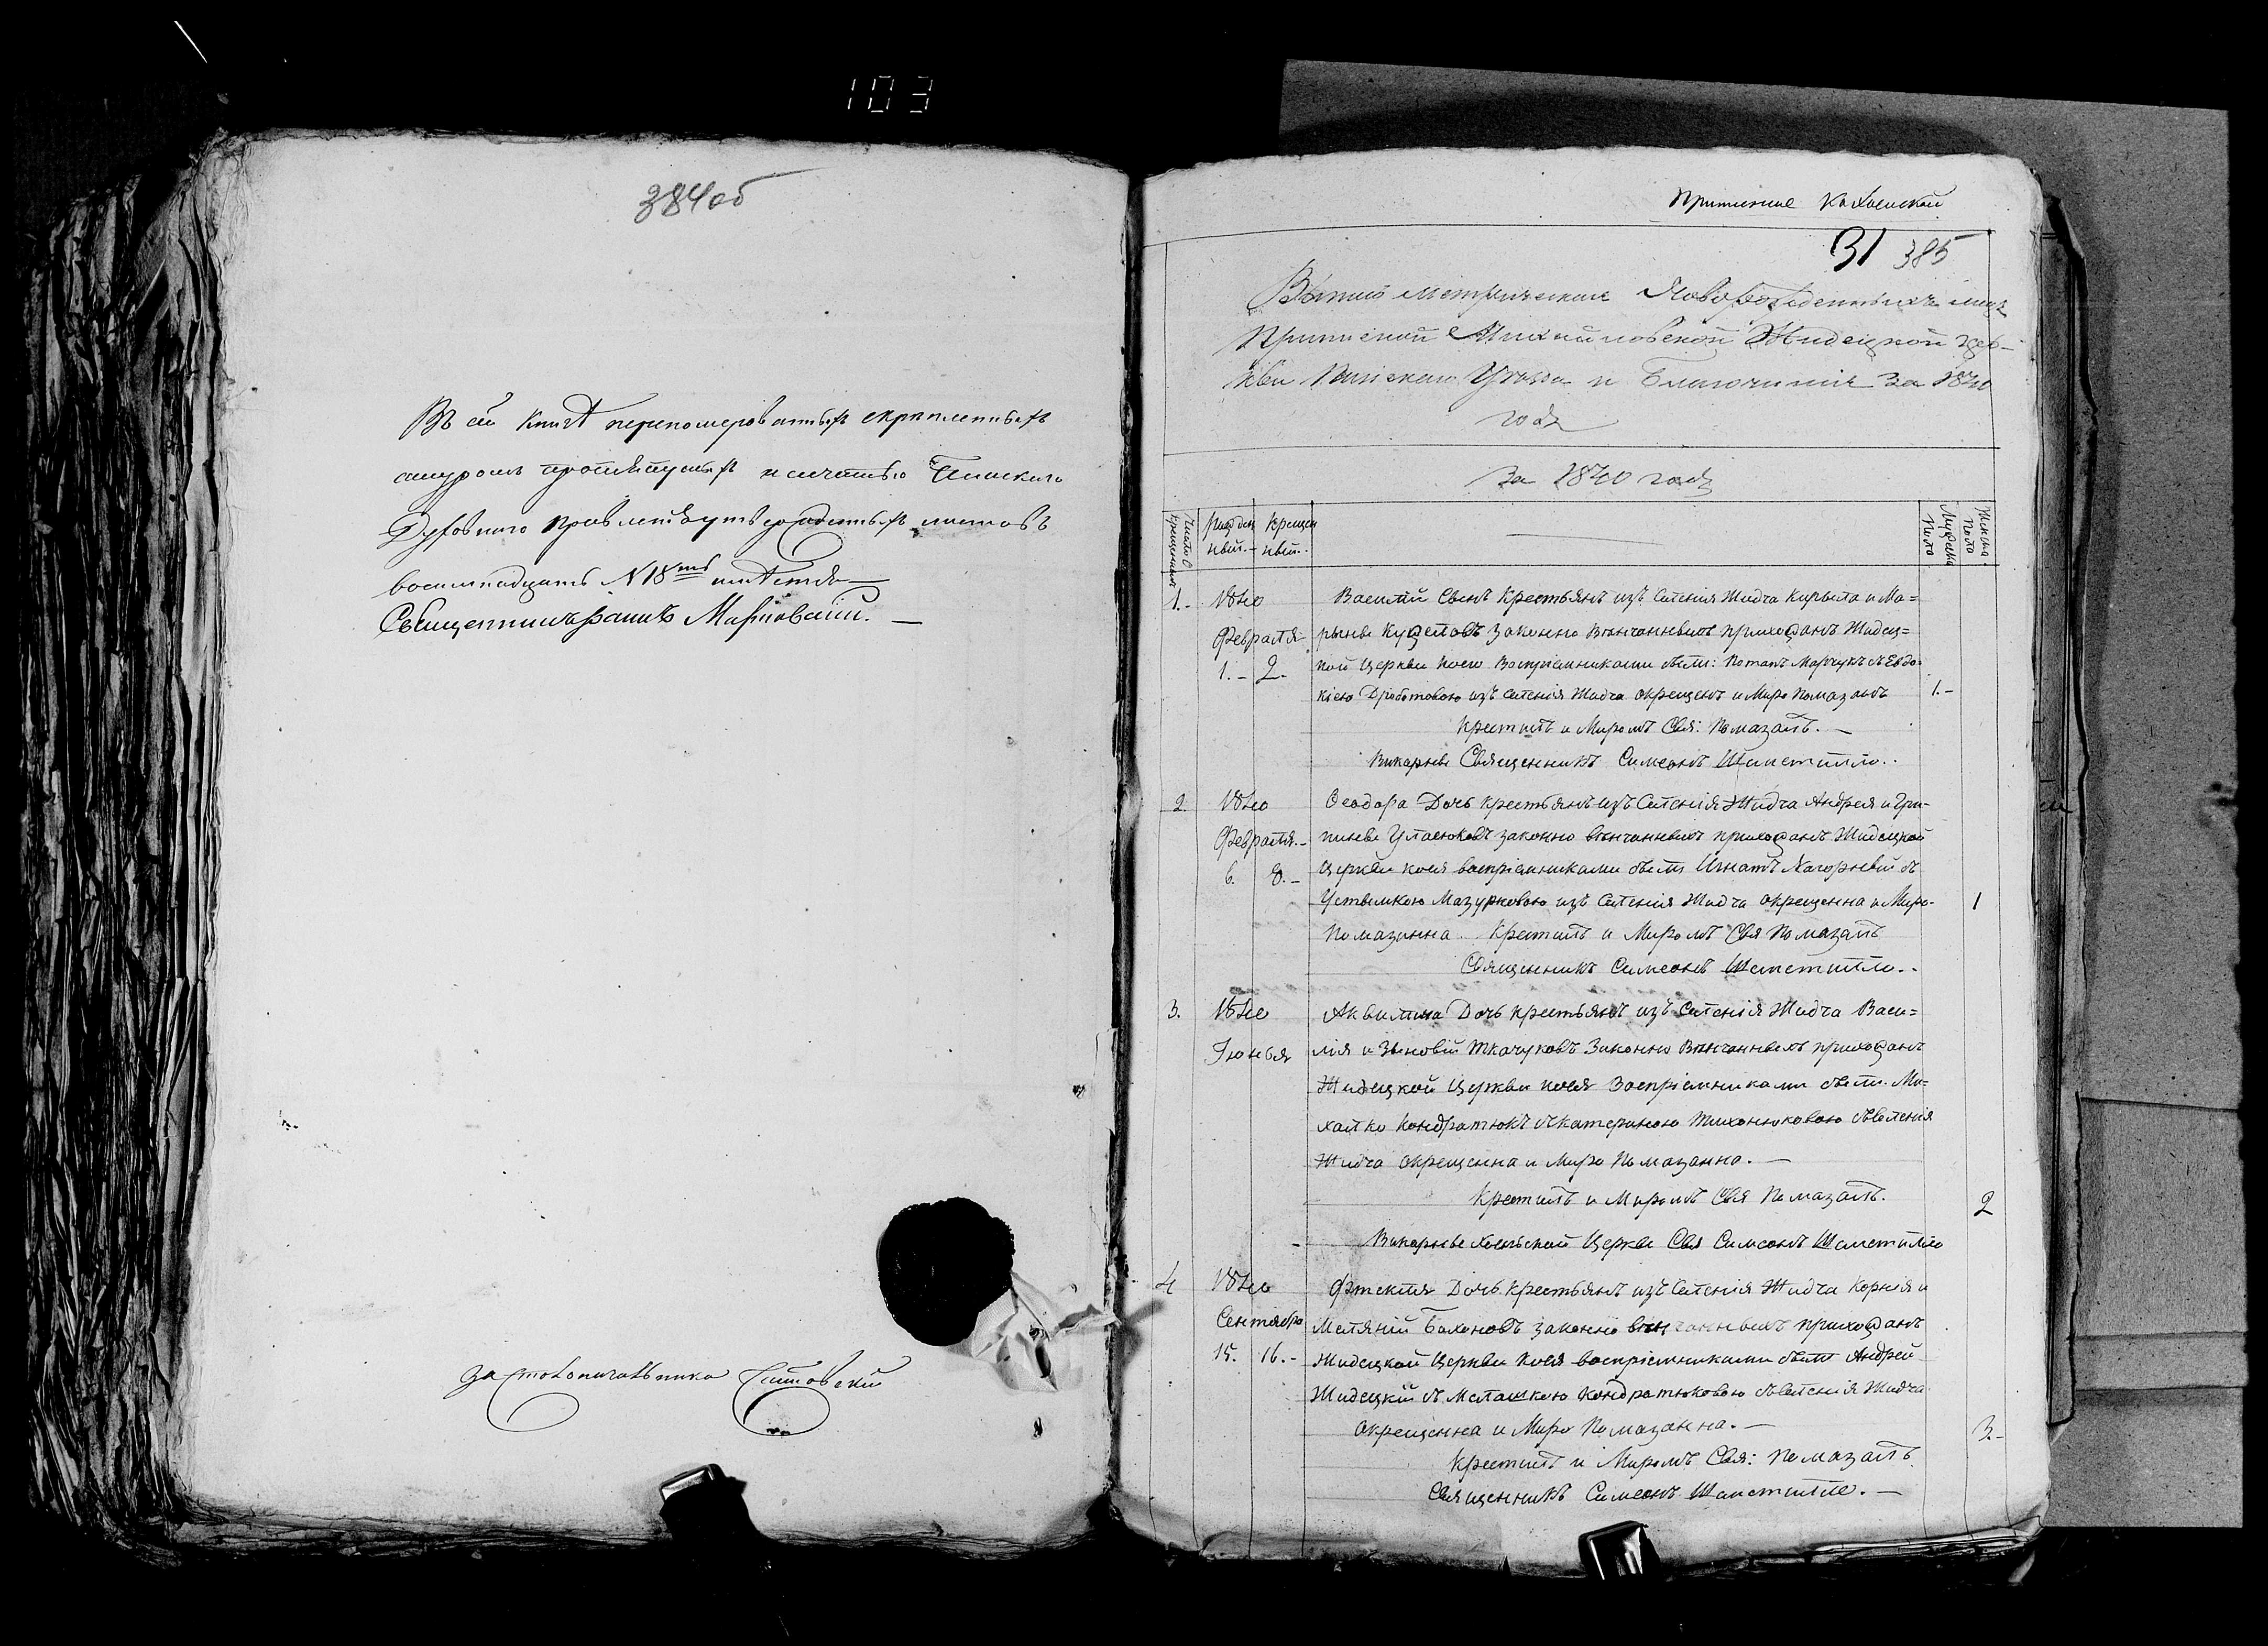 103
384об
Въ сей книгѣ переномерованныхъ скрѣпленныхъ
шнуромъ и печатью Пинскаго
Духовного Правленія утвержденныхъ листовъ
восемнадцать N 18
Священникъ
За Столоначальника
Приписное к Хойнской
31 385
Выпись метрическая Новорожденныхъ
Приписной Михайловской Жидецкой Цер-
кви Пинскаго Уѣзда и Благочинія за 1840
годъ
За 1840 годъ
Число крещенныхъ
Рожден
ный.-
Крещен
ный.
Мужеска Пола
Женска Пола
1.- 1840 Василій Сынъ Крестьянъ изъ Селенія Жидча Кирыла и Ма=
Февраля рыны законно Вѣнчанныхъ прихожанъ Жидец=
1.- 2. кой Церкви коего Воспріемниками были: Потапъ Марчукъ съ Евдо=
кіею Дроботовою изъ Селенія Жидча окрещенъ и Миро Помазанъ 1.-
Крестилъ и Миромъ Свя: Помазалъ.-
Викарный Священникъ Симеонъ
2 1840 Ѳеодора Дочь крестьянъ изъ Селенія Жидча Андрея и Гри-
Февраля.- пины законно вѣнчанныхъ прихожанъ Жидецкой
6. 8.- Церкви коея воспріемниками были Игнатъ Нагорный съ
Устымкою Мазурковою изъ Селенія Жидча окрещенна и Миро- 1
Помазанна. Крестилъ и Миромъ Свя Помазалъ
Священникъ Симеонъ
3. 1840 Аквилина Дочь крестьянъ изъ Селенія Жидча Васи=
Іюнья лія и Зѣновіи Ткачуковъ Законно Вѣнчанныхъ прихожанъ
Жидецкой Церкви коея Воспріемниками были. Ми=
халко Кондратюкъ съ Катериною Тихонюковою съ Селенія
Жидча окрещенна и Миро Помазанна.-
Крестилъ и Миромъ Свя Помазалъ. 2
Викарный Хойнской Церкви Свя Симеонъ
4 1840 Фтекля Дочь Крестьянъ изъ Селенія Жидча Корнія и
Сентября Меляніи законно вѣнчанныхъ прихожанъ
15. 16.- Жидецкой Церкви коея воспріемниками были Андрей
Жидецкій съ Мелашкою Кондратюковою съ Селенія Жидча
окрещенна и Миро Помазанна.- 3.-
Крестилъ и Миромъ Свя: Помазалъ
Священникъ Симеонъ